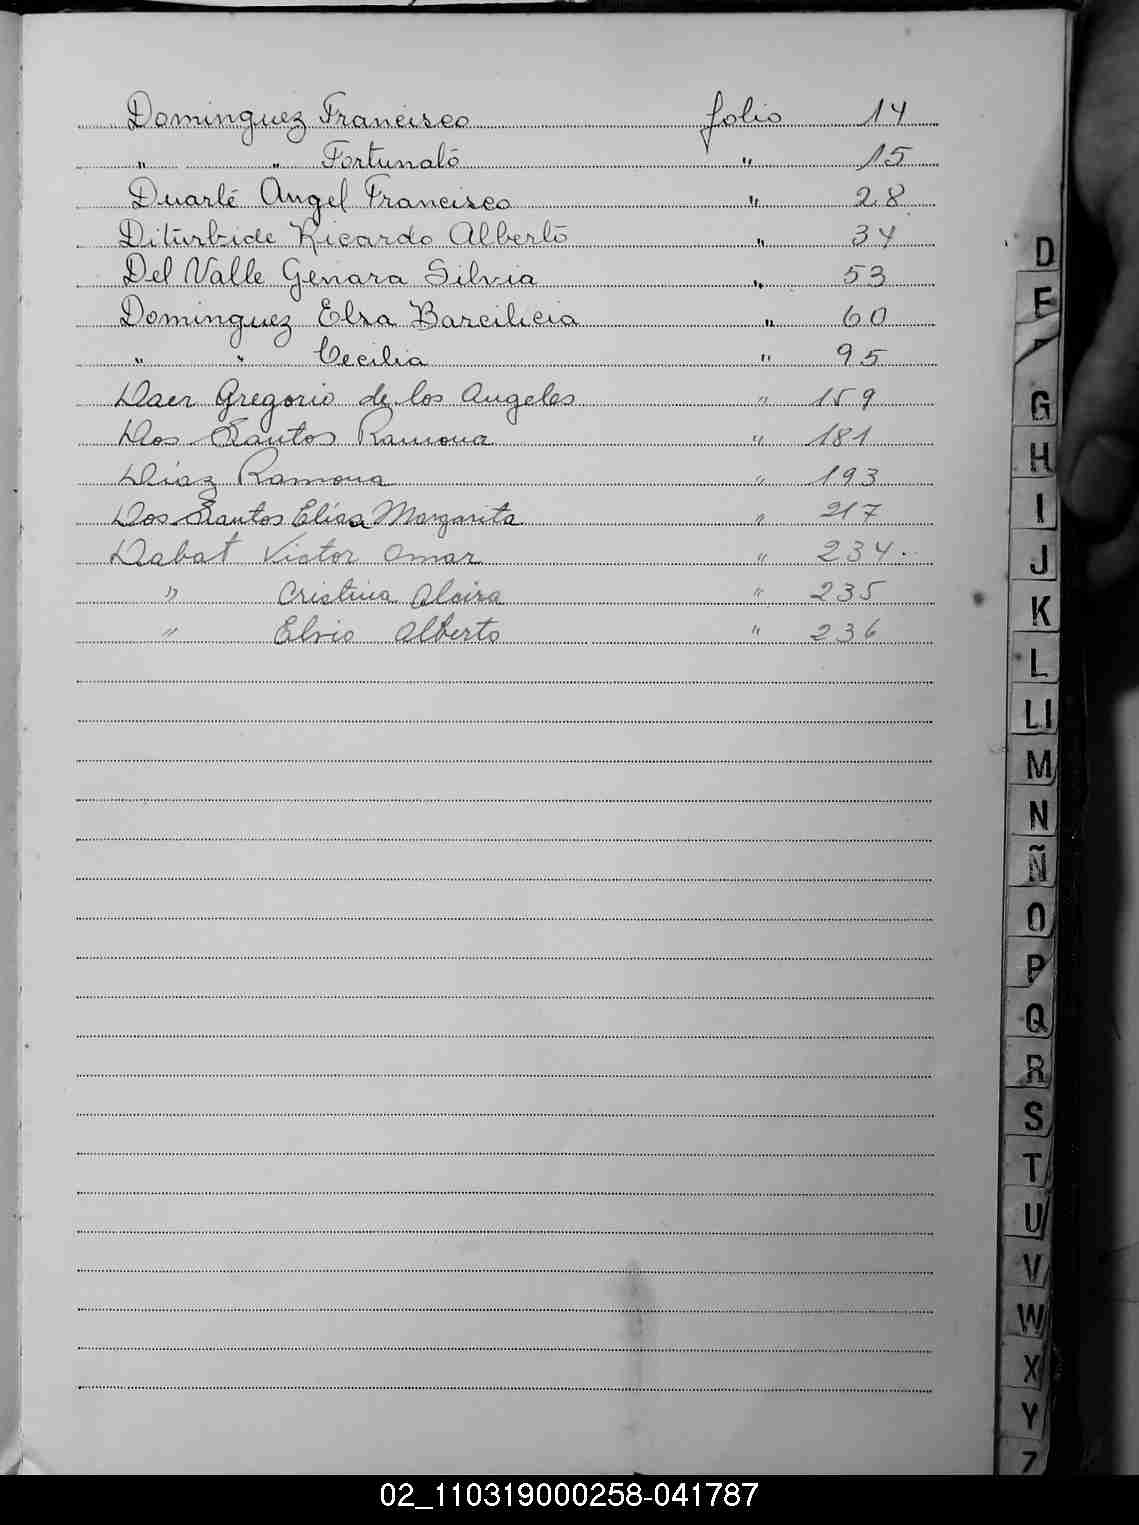 Dominguez Francisco folio 14
" " Fortunato " 15
Duarte Angel Francisco " 28
Diturbide Ricardo Alberto " 34
Del Valle Genara Silvia " 53
Dominguez Elsa Barcilicia " 60
" " Cecilia " 95
Daer Gregorio de los Angeles " 159
Dos Santos Ramona " 181
Díaz Ramona " 193
Dos Santos Elisa Margarita " 217
Dabat Victor Omar " 234.
" Cristina Alcira " 235
" Elvio Alberto " 236
D
E
G
H
I
J
K
L
Ll
M
N
Ñ
O
P
Q
R
S
T
U
V
W
X
Y
Z
02_110319000258-041787